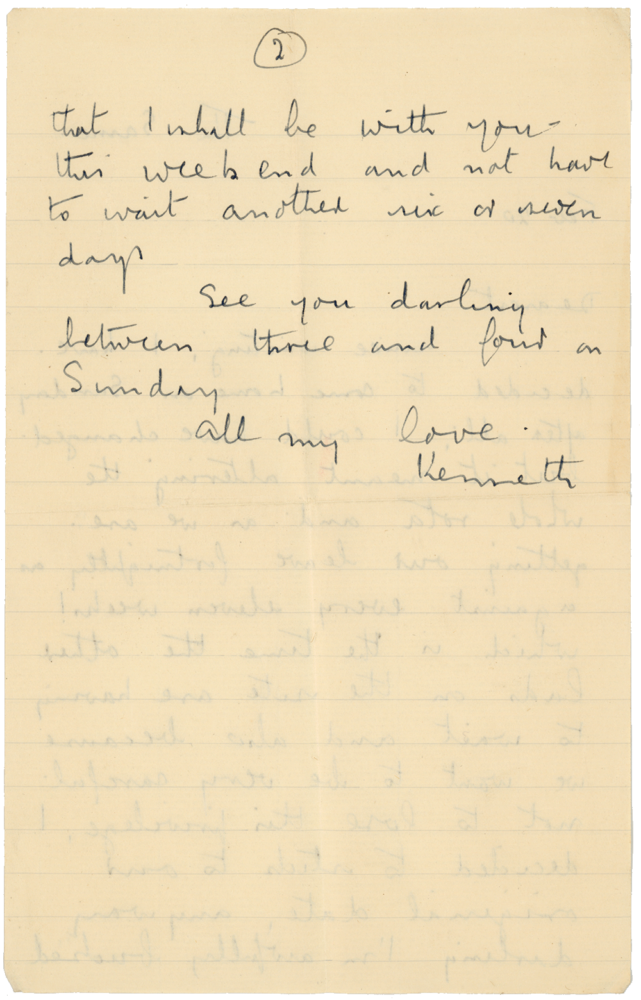 2
that I shall be with you
this week end and not have
to wait another six or seven
days
See you darling
between three and four on
Sunday
All my love.
Kenneth